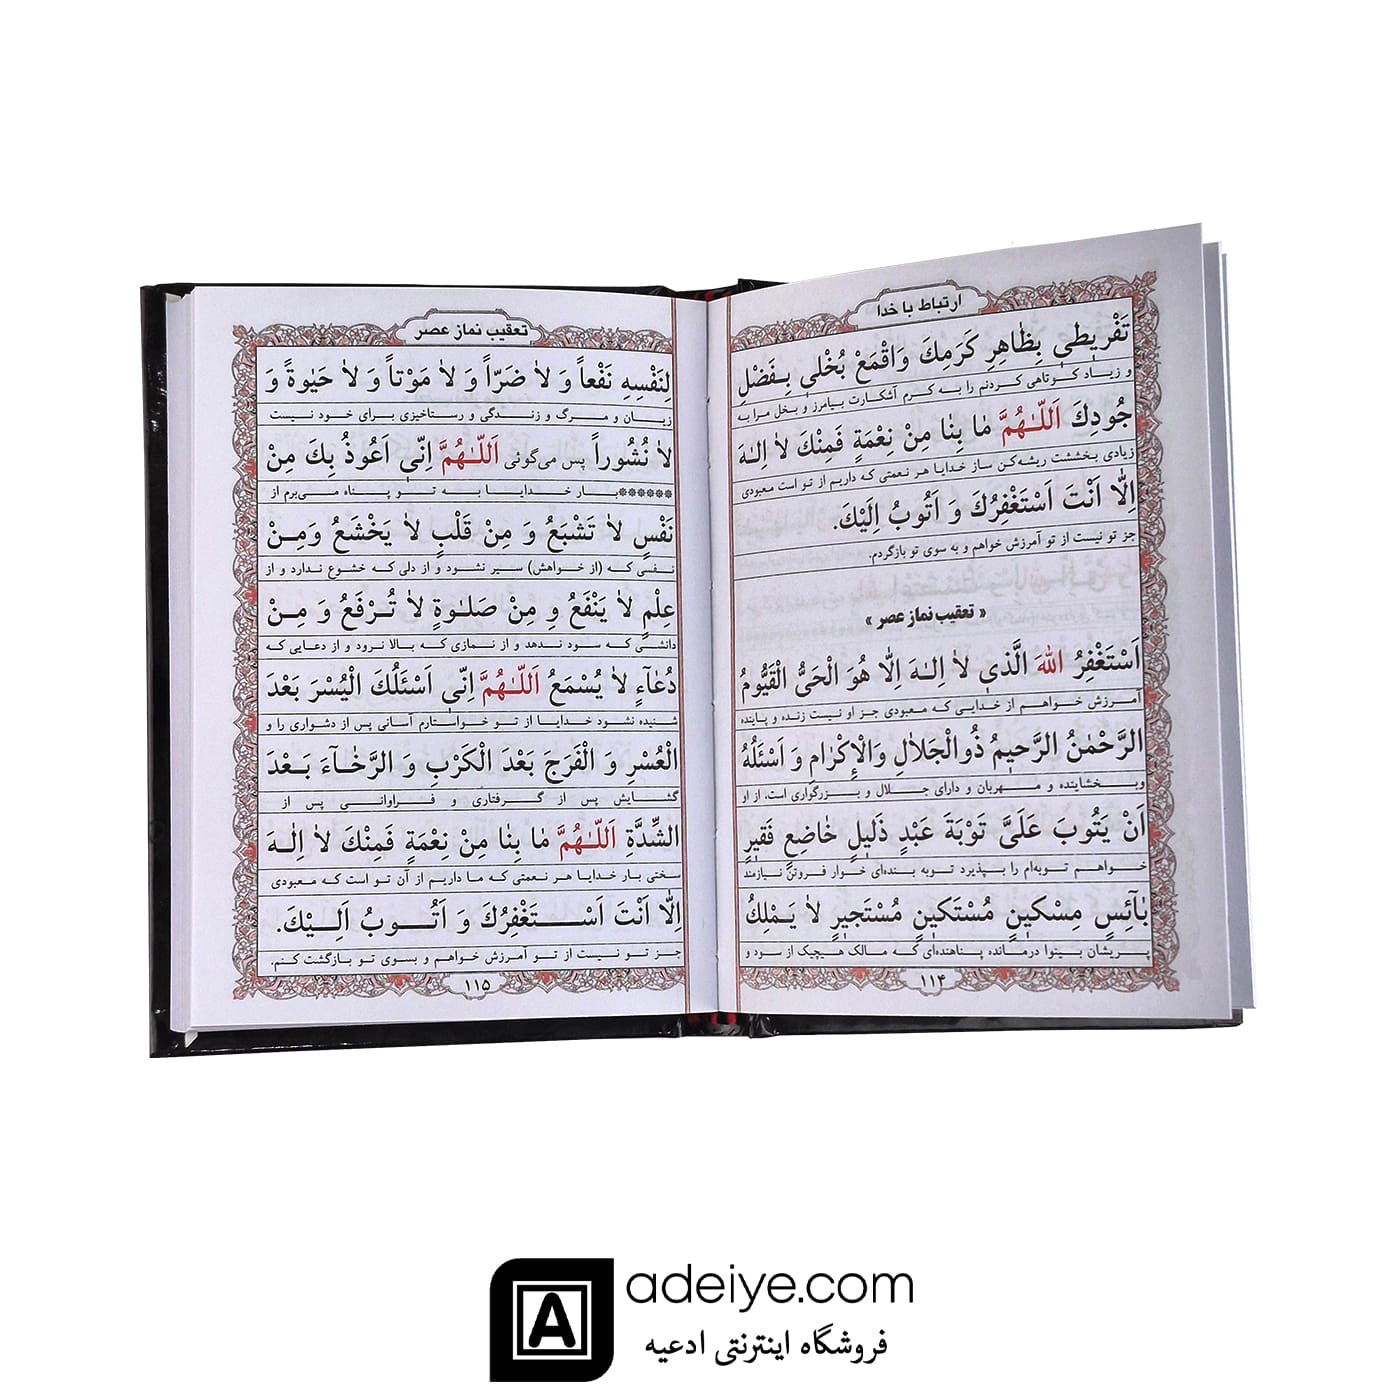 ارتباط با خدا
تَفْريطي بِظاهِرِ كَرَمِكَ وَاقْمَعْ بُخْلي بِفَضْلِ
و زیاد کوتاهی کردنم را به کرم آشکارت بیامرز و بخل مرا به
جُودِكَ اَللّهُمَّ ما بِنا مِنْ نِعْمَةٍ فَمِنْكَ لا اِلهَ
زیادی بخششت ریشه‌کن ساز خدایا هر نعمتی که داریم از تو است معبودی
اِلّا اَنْتَ اَسْتَغْفِرُكَ وَ اَتُوبُ اِلَيْكَ.
جز تو نیست از تو آمرزش خواهم و به سوی تو بازگردم.
« تعقیب نماز عصر »
اَسْتَغْفِرُ اللهَ الَّذي لا اِلهَ اِلّا هُوَ الْحَيُّ الْقَيُّومُ
آمرزش خواهم از خدایی که معبودی جز او نیست زنده و پاینده
الرَّحْمنُ الرَّحيمُ ذُوالْجَلالِ وَالْاِكْرامِ وَ اَسْئَلُهُ
وبخشاینده و مهربان و دارای جلال و بزرگواری است. از او
اَنْ يَتُوبَ عَلَيَّ تَوْبَةَ عَبْدٍ ذَليلٍ خاضِعٍ فَقيرٍ
خواهم توبه‌ام را بپذیرد توبه بنده‌ای خوار فروتن نیازمند
بآئِسٍ مِسْكينٍ مُسْتَكينٍ مُسْتَجيرٍ لا يَمْلِكُ
پریشان بینوا درمانده پناهنده‌ای که مالک هیچیک از سود و
۱۱۴
تعقیب نماز عصر
لِنَفْسِهِ نَفْعاً وَ لا ضَرّاً وَ لا مَوْتاً وَ لا حَيوةً وَ
زیان و مرگ و زندگی و رستاخیزی برای خود نیست
لا نُشُوراً پس می‌گوئی اَللّهُمَّ اِنّي اَعُوذُ بِكَ مِنْ
******بار خدایا به تو پناه می‌برم از
نَفْسٍ لا تَشْبَعُ وَ مِنْ قَلْبٍ لا يَخْشَعُ وَمِنْ
نفسی که (از خواهش) سیر نشود و از دلی که خشوع ندارد و از
عِلْمٍ لا يَنْفَعُ وِ مِنْ صَلوةٍ لا تُرْفَعُ وَ مِنْ
دانشی که سود ندهد و از نمازی که بالا نرود و از دعایی که
دُعآءٍ لا يُسْمَعُ اَللّهُمَّ اِنّي اَسْئَلُكَ الْيُسْرَ بَعْدَ
شنیده نشود خدایا از تو خواستارم آسانی پس از دشواری را و
الْعُسْرِ وَ الْفَرَجَ بَعْدَ الْكَرْبِ وَ الرَّخآءَ بَعْدَ
گشایش پس از گرفتاری و فراوانی پس از
الشِّدَّةِ اَللّهُمَّ ما بِنا مِنْ نِعْمَةٍ فَمِنْكَ لا اِلهَ
سختی بار خدایا هر نعمتی که ما داریم از آن تو است که معبودی
اِلّا اَنْتَ اَسْتَغْفِرُكَ وَ اَتُوبُ اِلَيْكَ.
جز تو نیست از تو آمرزش خواهم و بسوی تو بازگشت کنم.
۱۱۵
A
adeiye.com
فروشگاه اینترنتی ادعیه